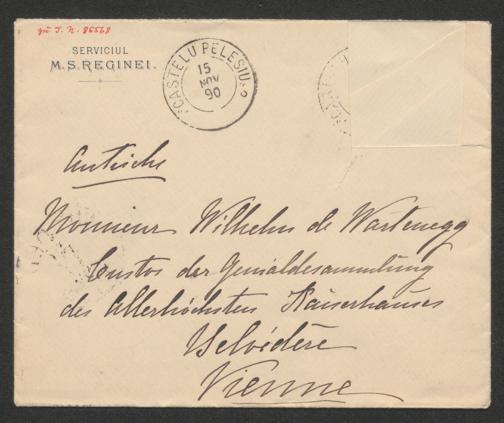 zu I. N. 85568
SERVICIUL
M. S. REGINEI.
CASTELU PELESIU
15
NOV
90
Autriche
Monsieur Wilhelm de Wartenegg
Custos der Gemäldesammlung
des Allerhöchsten Kaiserhauses
Belvédère
Vienne